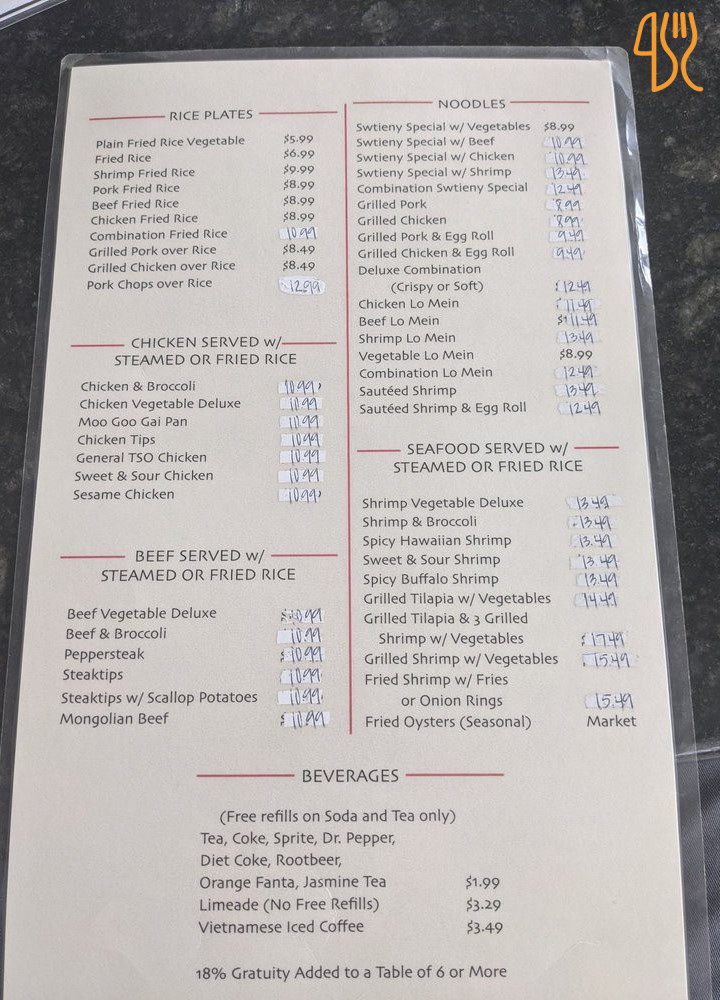 RICE PLATES
Plain Fried Rice Vegetable $5.99
Fried Rice $6.99
Shrimp Fried Rice $9.99
Pork Fried Rice $8.99
Beef Fried Rice $8.99
Chicken Fried Rice $8.99
Combination Fried Rice 10.99
Grilled Pork over Rice $8.49
Grilled Chicken over Rice $8.49
Pork Chops over Rice 12.99
CHICKEN SERVED w/
STEAMED OR FRIED RICE
Chicken & Broccoli 10.99
Chicken Vegetable Deluxe 10.99
Moo Goo Gai Pan 10.99
Chicken Tips 10.99
General TSO Chicken 10.99
Sweet & Sour Chicken 10.99
Sesame Chicken 10.99
BEEF SERVED w/
STEAMED OR FRIED RICE
Beef Vegetable Deluxe $10.99
Beef & Broccoli 10.99
Peppersteak $10.99
Steaktips 10.99
Steaktips w/ Scallop Potatoes 10.99
Mongolian Beef $10.99
NOODLES
Swtieny Special w/ Vegetables $8.99
Swtieny Special w/ Beef 10.99
Swtieny Special w/ Chicken 10.99
Swtieny Special w/ Shrimp 13.49
Combination Swtieny Special 12.49
Grilled Pork 8.99
Grilled Chicken 8.99
Grilled Pork & Egg Roll 9.49
Grilled Chicken & Egg Roll 9.49
Deluxe Combination
(Crispy or Soft) 12.49
Chicken Lo Mein 11.49
Beef Lo Mein $11.49
Shrimp Lo Mein 13.49
Vegetable Lo Mein $8.99
Combination Lo Mein 12.49
Sautéed Shrimp 13.49
Sautéed Shrimp & Egg Roll 12.49
SEAFOOD SERVED w/
STEAMED OR FRIED RICE
Shrimp Vegetable Deluxe 13.49
Shrimp & Broccoli 13.49
Spicy Hawaiian Shrimp 13.49
Sweet & Sour Shrimp 13.49
Spicy Buffalo Shrimp 13.49
Grilled Tilapia w/ Vegetables 14.49
Grilled Tilapia & 3 Grilled
Shrimp w/ Vegetables $17.49
Grilled Shrimp w/ Vegetables 15.49
Fried Shrimp w/ Fries
or Onion Rings 15.49
Fried Oysters (Seasonal) Market
BEVERAGES
(Free refills on Soda and Tea only)
Tea, Coke, Sprite, Dr. Pepper,
Diet Coke, Rootbeer,
Orange Fanta, Jasmine Tea $1.99
Limeade (No Free Refills) $3.29
Vietnamese Iced Coffee $3.49
18% Gratuity Added to a Table of 6 or More